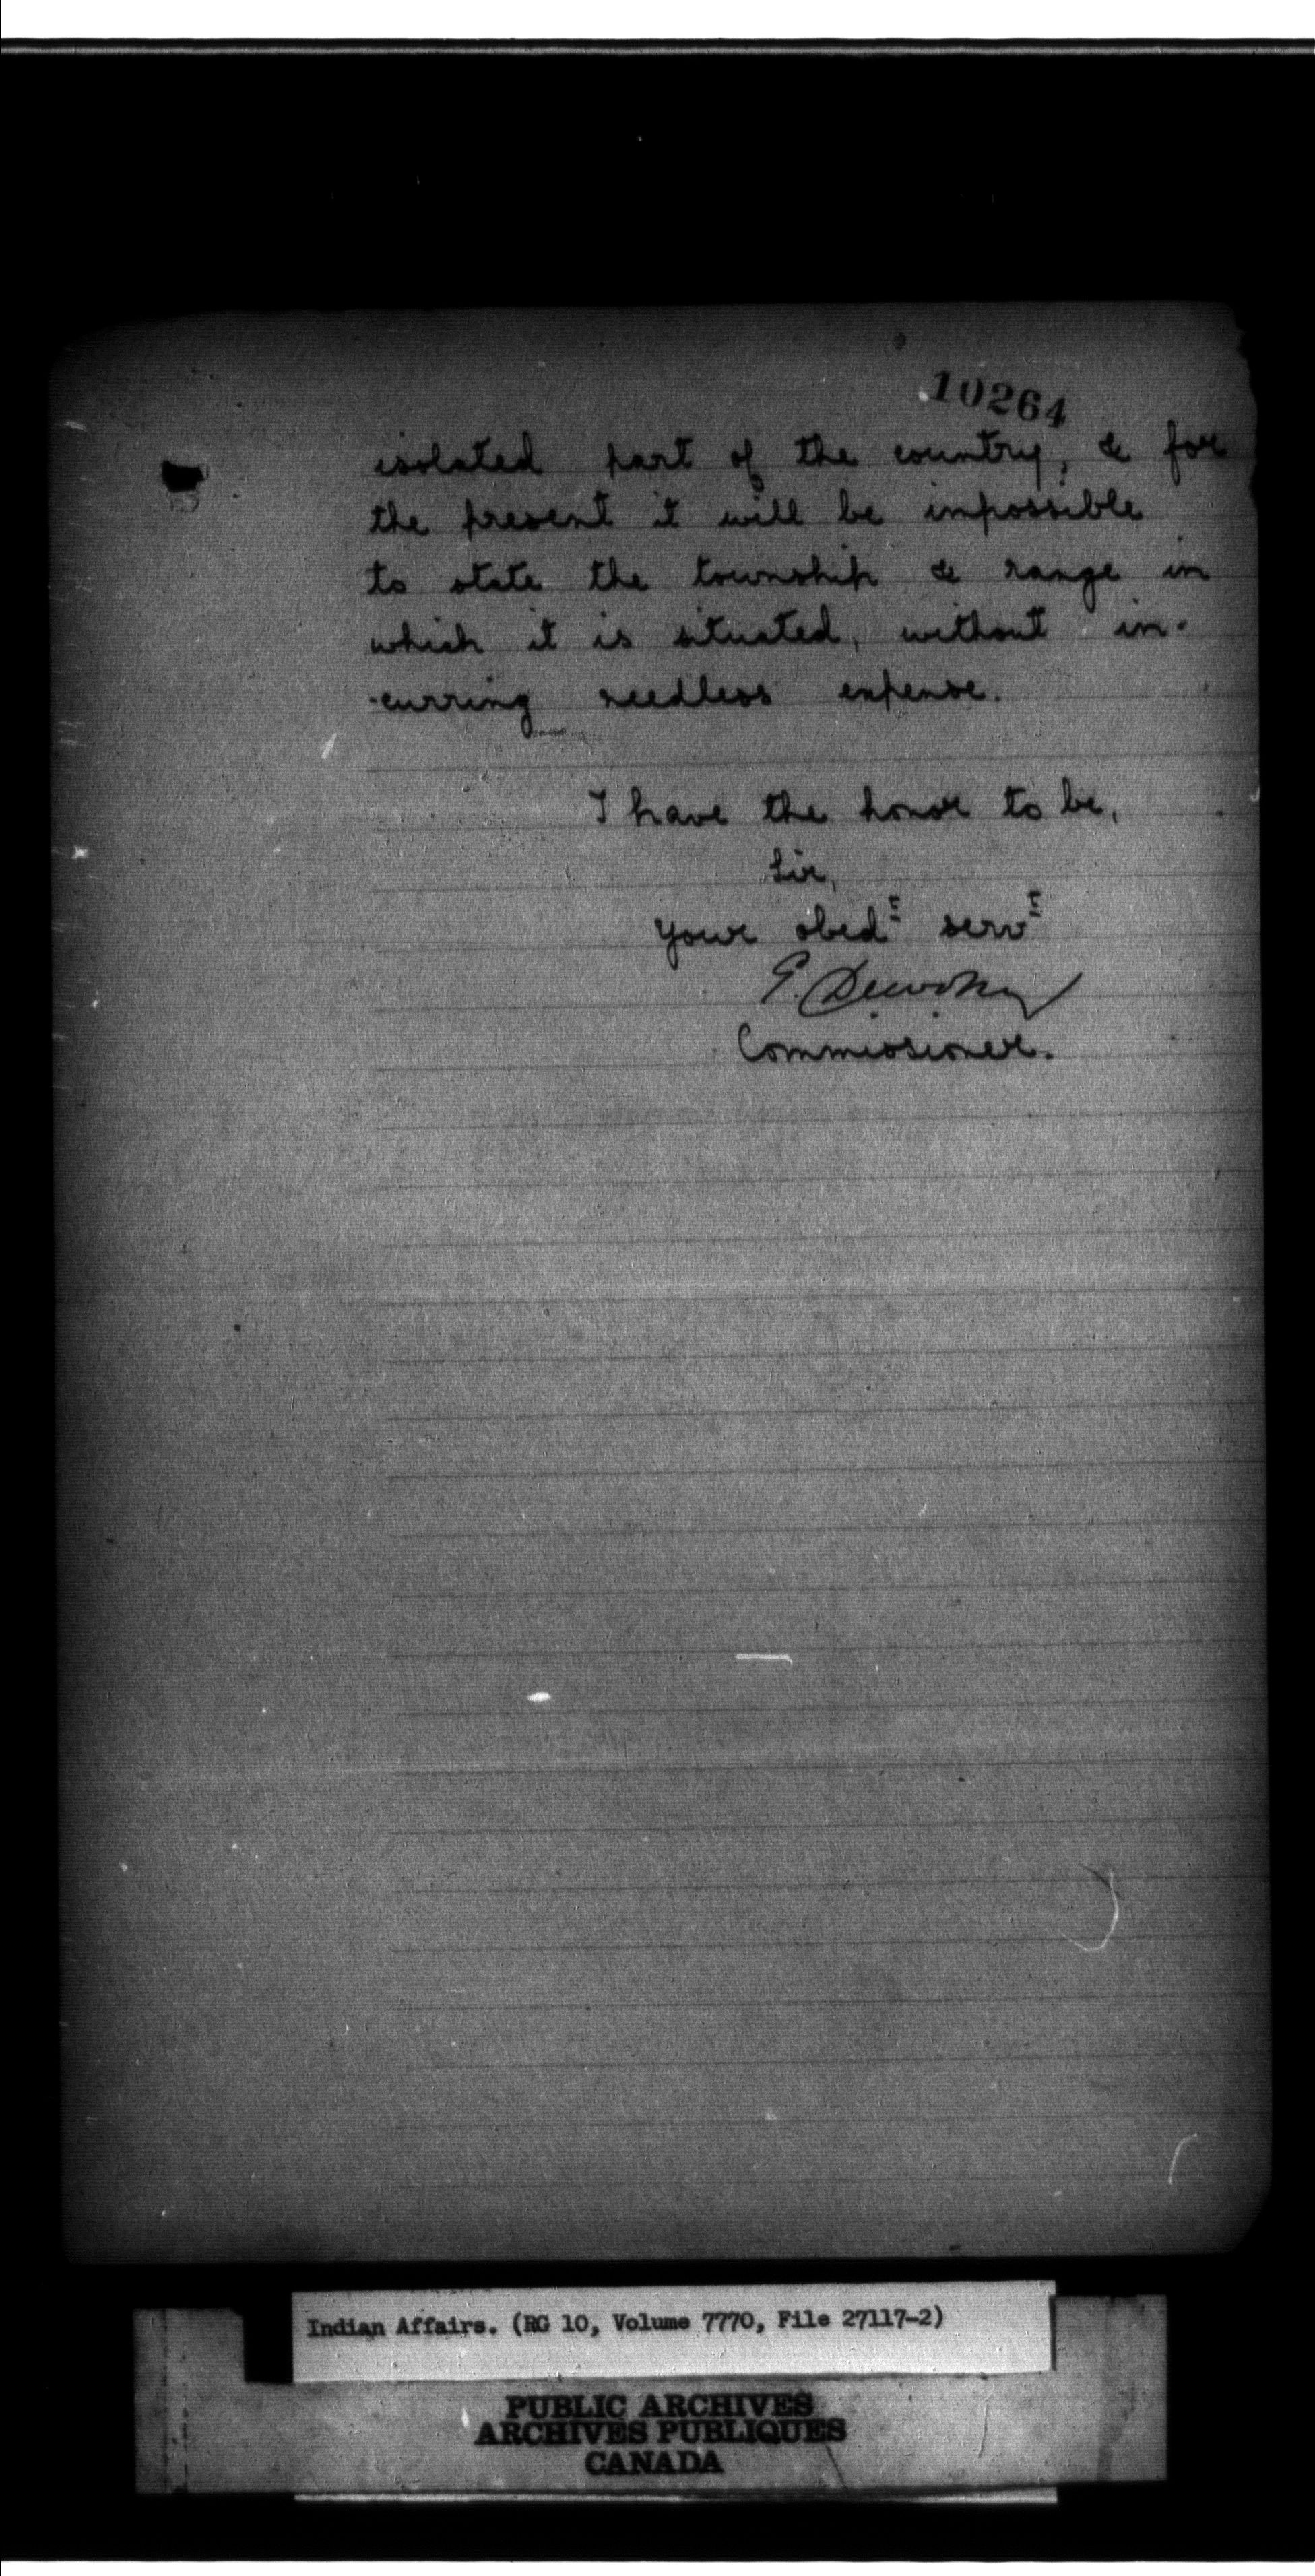 10264
isolated part of the country, & for
the present it will be impossible
to state the township & range in
which it is situated, without in-
-curring needless expense.
I have the honor to be,
Sir,
your obedt servt
E. Dewdney
Commissioner.
Indian Affairs. (RG 10, Volume 7770, File 27117-2)
PUBLIC ARCHIVES
ARCHIVES PUBLIQUES
CANADA